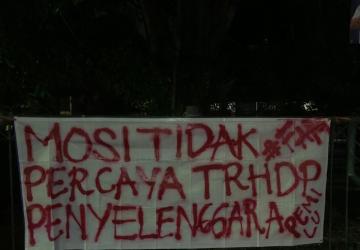 MOSI TIDAK
PERCAYA TRHDP
PENYELENGGARA